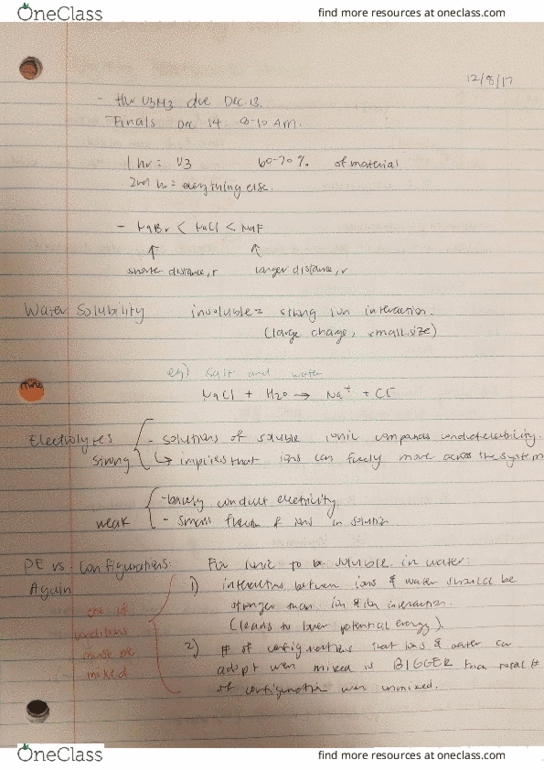 OneClass find more resources at oneclass.com
12/8/17
- HW U3M3 due Dec. 13.
Finals Dec 14 8-10 AM.
1 hr: U3 60-70% of material
2nd hr = everything else.
- NaBr < NaCl < NaF
shorter distance, r larger distance, r
Water Solubility insoluble = strong ion interaction.
(large charge, small size)
eg) Salt and water
NaCl + H2O → Na+ + Cl-
Electrolytes - solutions of soluble ionic compounds conduct electricity.
strong ↳ implies that ions can freely move across the system
- barely conduct electricity
weak - small fraction of ions in solution
PE vs. Configurations: For ionic to be soluble in water:
Again 1) interaction between ions & water should be
stronger than ion & ion interaction.
(leads to lower potential energy)
one of
conditions
must be
mixed
2) # of configurations that ions & water can
adopt when mixed is BIGGER than total #
of configuration when unmixed.
OneClass find more resources at oneclass.com